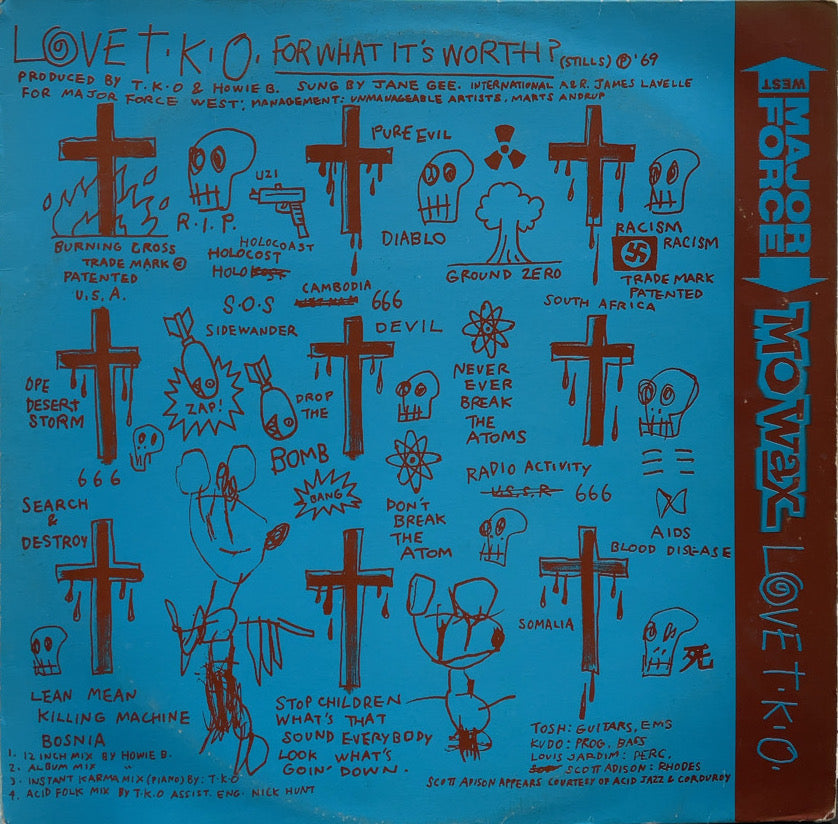 LOVE T·K·O. FOR WHAT IT'S WORTH? (STILLS) ℗'69
PRODUCED BY T.K.O & HOWIE B. SUNG BY JANE GEE. INTERNATIONAL A&R. JAMES LAVELLE
FOR MAJOR FORCE WEST; MANAGEMENT: UNMANAGEABLE ARTISTS, MARTS ANDRUP
PURE EVIL
UZI
R.I.P.
DIABLO
BURNING CROSS
TRADE MARK ©
PATENTED
U.S.A.
HOLOCOAST
HOLOCOST
HOLOCOST
GROUND ZERO
RACISM
RACISM
TRADE MARK
PATENTED
SOUTH AFRICA
CAMBODIA
666
S.O.S
SIDEWANDER
DEVIL
OPE
DESERT
STORM
ZAP!
DROP
THE
BOMB
BANG
NEVER
EVER
BREAK
THE
ATOMS
666
RADIO ACTIVITY
U.S.S.R 666
DON'T
BREAK
THE
ATOM
AIDS
BLOOD DISEASE
SEARCH
&
DESTROY
SOMALIA
死
LEAN MEAN
KILLING MACHINE
BOSNIA
STOP CHILDREN
WHAT'S THAT
SOUND EVERYBODY
LOOK WHAT'S
GOIN' DOWN.
1. 12 INCH MIX BY HOWIE B.
2. ALBUM MIX "
3. INSTANT KARMA MIX (PIANO) BY: T·K·O
4. ACID FOLK MIX BY T.K.O ASSIST. ENG. NICK HUNT
TOSH: GUITARS, EMS
KUDO: PROG, BASS
LOUIS JARDIM: PERC.
SCOTT ADISON: RHODES
SCOTT ADISON APPEARS COURTESY OF ACID JAZZ & CORDUROY
MAJOR
FORCE
WEST
MO WAX
LOVE T·K·O.